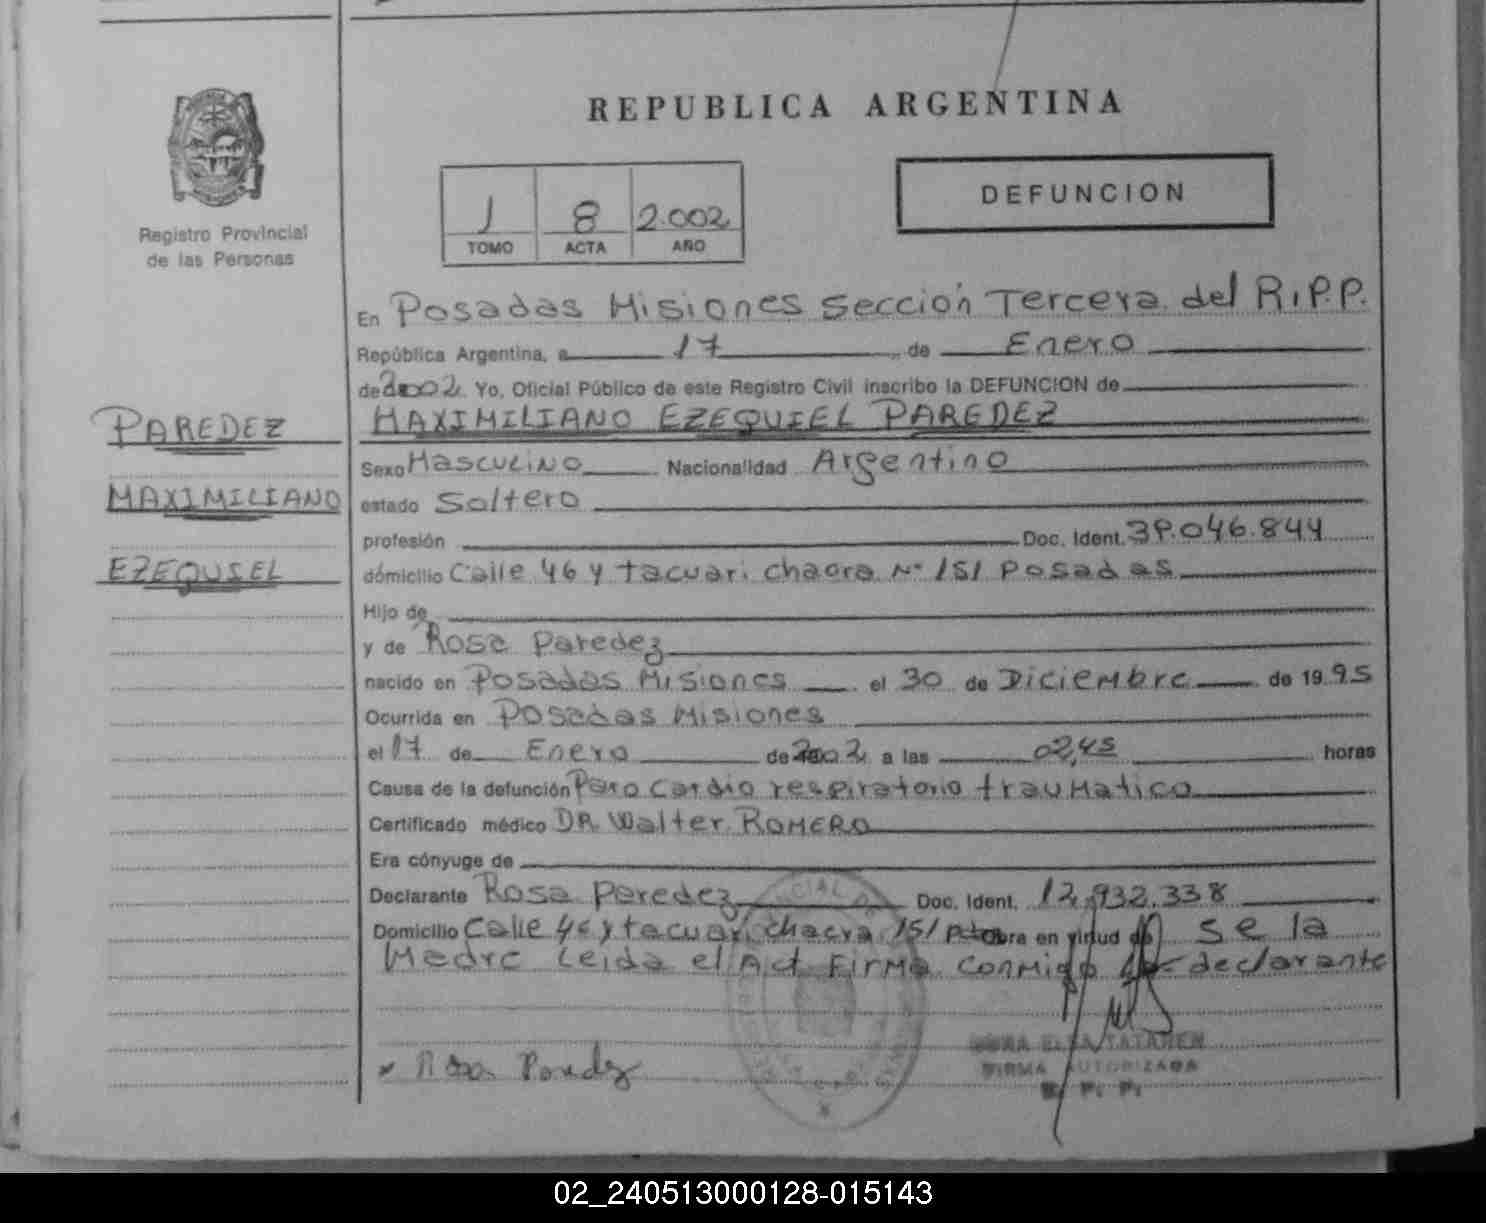 REPUBLICA ARGENTINA
DEFUNCION
1 8 2.002
TOMO ACTA AÑO
Registro Provincial
de las Personas
En Posadas Misiones Sección Tercera del R.P.P.
República Argentina, a 17 de Enero
de 2002. Yo, Oficial Público de este Registro Civil inscribo la DEFUNCION de
PAREDEZ
MAXIMILIANO EZEQUIEL PAREDEZ
Sexo Masculino Nacionalidad Argentino
MAXIMILIANO
estado Soltero
profesión Doc. Ident. 39.046.844
EZEQUIEL
dómicilio Calle 46 y tacuari chacra Nº 151 Posadas
Hijo de
y de Rosa Paredez
nacido en Posadas Misiones el 30 de Diciembre de 1995
Ocurrida en Posadas Misiones
el 17 de Enero de 2002 a las 02,45 horas
Causa de la defunción Paro Cardio respiratorio traumatico
Certificado médico DR. Walter ROMERO
Era cónyuge de
Declarante Rosa Paredez Doc. Ident. 12.932.338
Domicilio Calle 46 y tacuari chacra 151 Obra en virtud de se la
Madre Leida el Act. Firma conmigo declarante
Rosa Paredez
ELSA TATAREN
FIRMA AUTORIZADA
R. P. P.
02_240513000128-015143